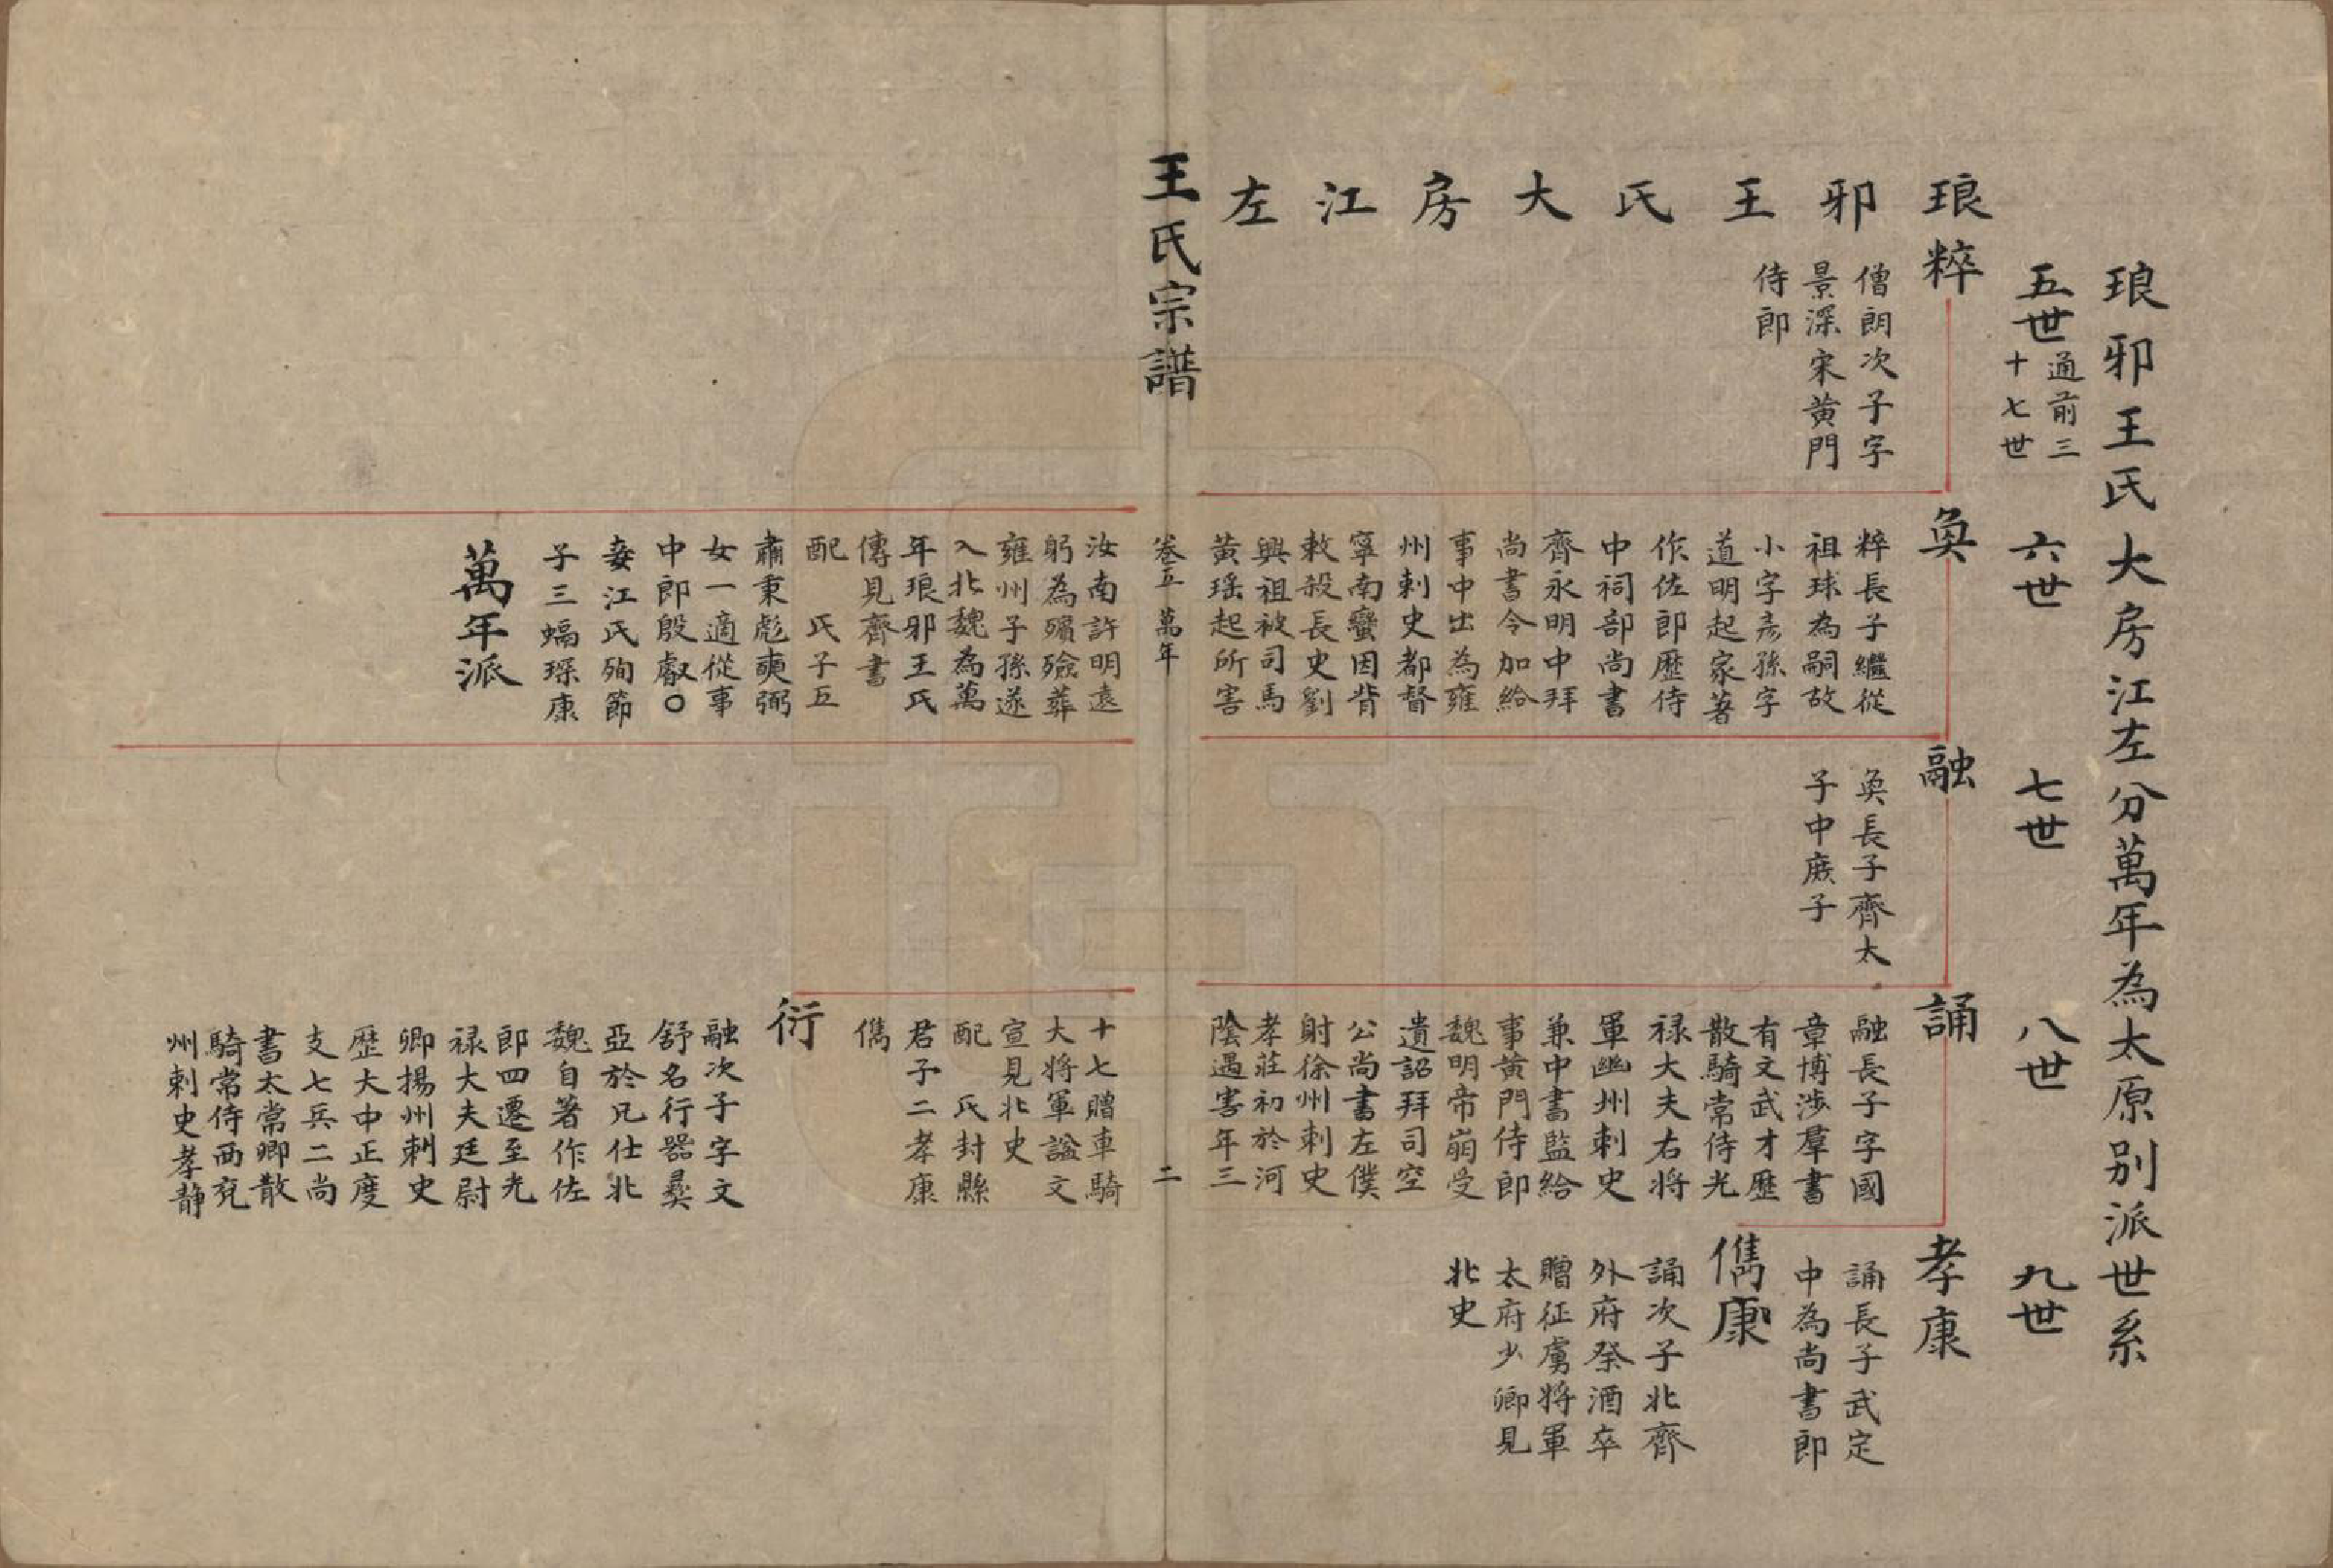 琅邪王氏大房江左分萬年為太原別派世系
五世
通前三
十七世
六世
七世
八世
九世
琅邪王氏大房江左
粹
僧朗次子字
景深宋黃門
侍郎
奐
粹長子繼從
祖球為嗣故
小字彥孫字
道明起家著
作佐郎歷侍
中祠部尚書
齊永明中拜
尚書令加給
事中出為雍
州刺史都督
寧南蠻因背
敕殺長史劉
興祖被司馬
黃瑤起所害
汝南許明遠
躬為殯殮葬
雍州子孫遂
入北魏為萬
年琅邪王氏
傳見齊書
配 氏子五
肅秉彪奭弼
女一適從事
中郎殷叡○
妾江氏殉節
子三蝠琛康
萬年派
融
奐長子齊太
子中庶子
誦
融長子字國
章博涉羣書
有文武才歷
散騎常侍光
祿大夫右將
軍幽州刺史
兼中書監給
事黃門侍郎
魏明帝崩受
遺詔拜司空
公尚書左僕
射徐州刺史
孝莊初於河
陰遇害年三
十七贈車騎
大將軍諡文
宣見北史
配 氏封縣
君子二孝康
儁
衍
融次子字文
舒名行器彛
亞於兄仕北
魏自著作佐
郎四遷至光
祿大夫廷尉
卿揚州刺史
歷大中正度
支七兵二尚
書太常卿散
騎常侍西兗
州刺史孝靜
孝康
誦長子武定
中為尚書郎
儁康
誦次子北齊
外府祭酒卒
贈征虜將軍
太府少卿見
北史
王氏宗譜
卷五 萬年
二